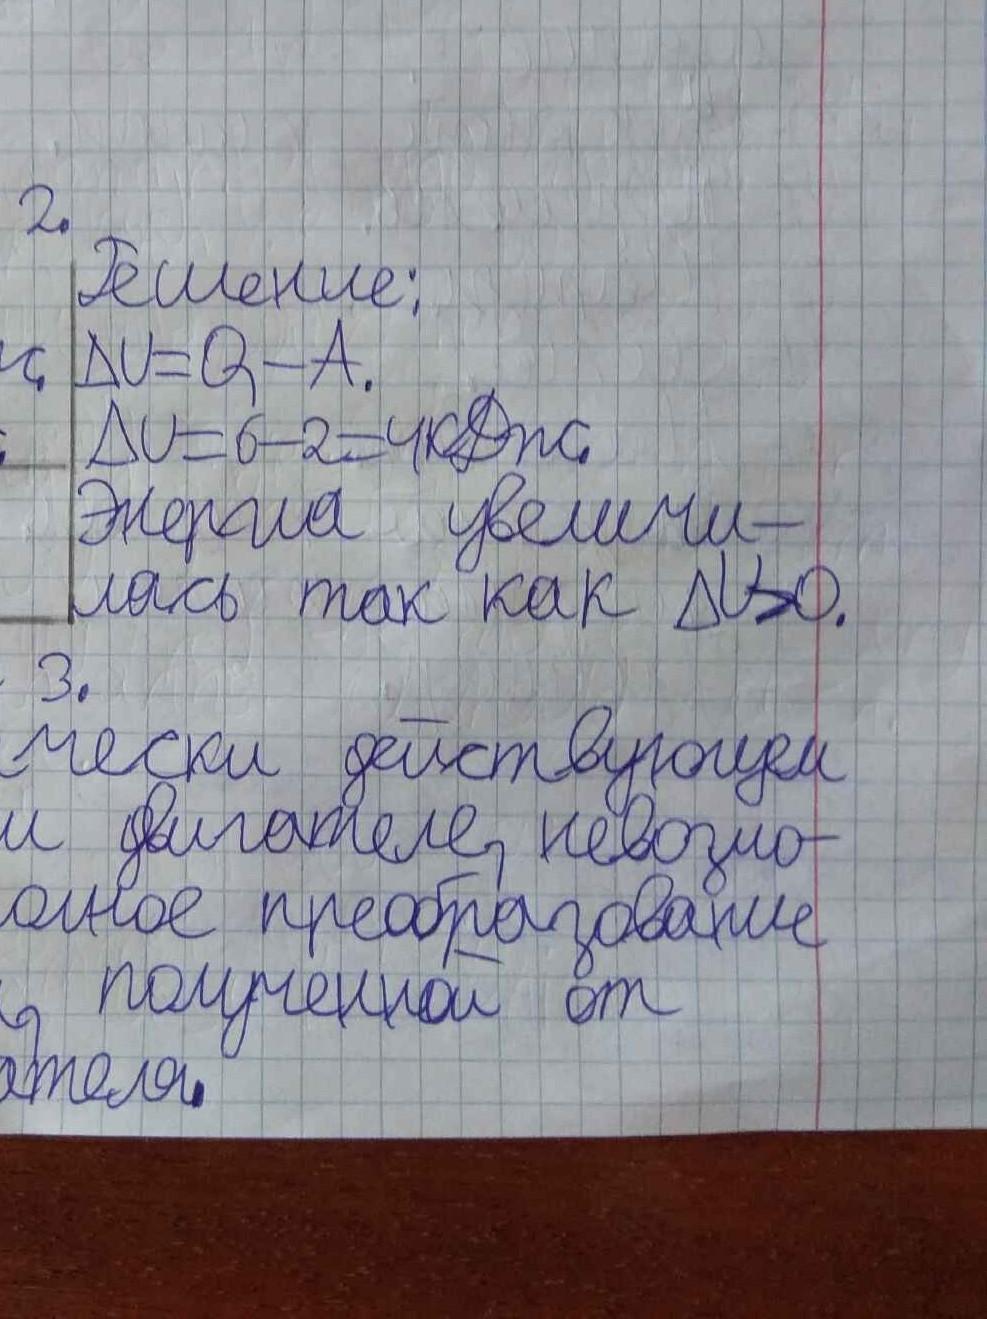 2.
Решение:
ж. ΔU=Q-A.
ΔU=6-2=4кДж.
Энергия увеличи-
лась так как ΔU>0.
3.
чески действующем
м двигателе, невозмо-
преобразование
, полученной от
ателя.